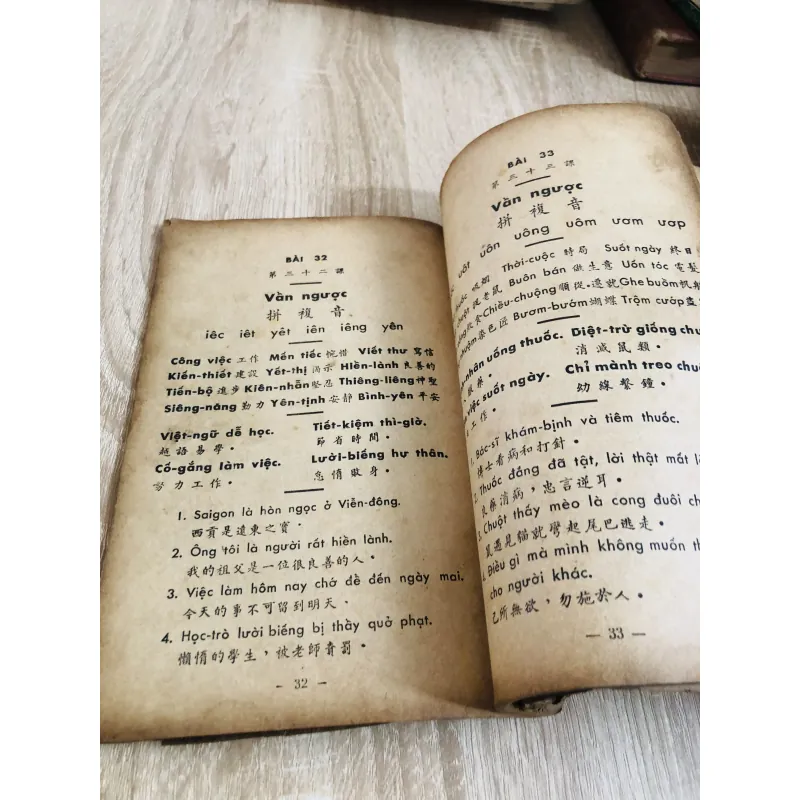 BÀI 32
第三十二課
Vần ngược
拼複音
iêc iêt yêt iên iêng yên
Công việc 工作 Mến tiếc 惋惜 Viết thư 寫信
Kiến-thiết 建設 Yết-thị 揭示 Hiền-lành 良善的
Tiến-bộ 進步 Kiên-nhẫn 堅忍 Thiêng-liêng 神聖
Siêng-năng 勤力 Yên-tịnh 安靜 Bình-yên 平安
Việt-ngữ dễ học. Tiết-kiệm thì-giờ.
越語易學。 節省時間。
Cố-gắng làm việc. Lười-biếng hự thân.
努力工作。 怠惰敗身。
1. Saigon là hòn ngọc ở Viễn-đông.
西貢是遠東之寶。
2. Ông tôi là người rất hiền lành.
我的祖父是一位很良善的人。
3. Việc làm hôm nay chớ dề đến ngày mai.
今天的事不可留到明天.
4. Học-trò lười biếng bị thầy quở phạt.
懶惰的學生，被老師責罰。
- 32 -
BÀI 33
第三十三課
Vần ngược
拼複音
uôt uôn uông uôm ươm ươp
吸烟 Thời-cuộc 時局 Suốt ngày 終日
老鼠 Buôn bán 做生意 Uốn tóc 電髮
飲食 Chiều-chuộng 順從.遷就 Ghe buồm 帆船
染色匠 Bươm-bướm 蝴蝶 Trộm cướp 盜
-nhân uống thuốc. Diệt-trừ giống chu
服藥。 消滅鼠類。
việc suốt ngày. Chỉ mành treo chu
工作。 幼線繫鐘。
1. Bác-sĩ khám-bịnh và tiêm thuốc.
博士看病和打針。
2. Thuốc đắng đã tật, lời thật mất l
良藥消病，忠言逆耳。
3. Chuột thấy mèo là cong đuôi ch
鼠遇見貓就彎起尾巴逃走。
4. Điều gì mà mình không muốn th
cho người khác.
己所無欲，勿施於人。
- 33 -